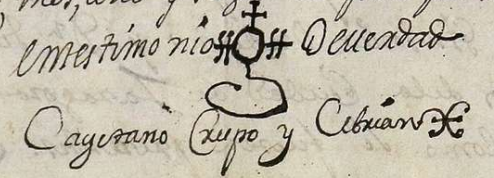 en testimonio De verdad
Cayetano Crespo y Cebrian